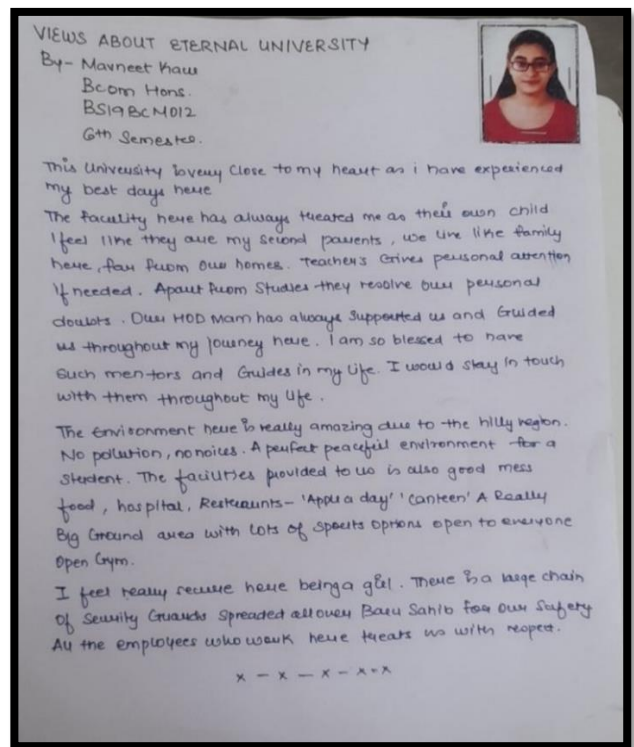 VIEWS ABOUT ETERNAL UNIVERSITY
By- Mavneet Kaur
Bcom Hons.
BS19BCM012
6th Semester.
This University is very close to my heart as i have experienced
my best days here
The faculity here has always treated me as their own child
I feel like they are my second parents, we live like family
here, far from our homes. Teacher's Gives personal attention
If needed. Apart from Studies they resolve our personal
doubts. Our HOD Mam has always supported us and Guided
us throughout my journey here. I am so blessed to have
such mentors and Guides in my life. I would stay in touch
with them throughout my life.
The Environment here is really amazing due to the hilly region.
No pollution, no noices. A perfect peaceful environment for a
student. The facilities provided to us is also good mess
food, hospital, Restraunts- 'Apple a day' 'Canteen' A Really
Big Ground area with lots of sports options open to everyone
Open Gym.
I feel really secure here being a girl. There is a large chain
of Security Guards Spreaded all over Baru Sahib for our Safety
All the employees who work here treats us with respect.
x - x - x - x - x